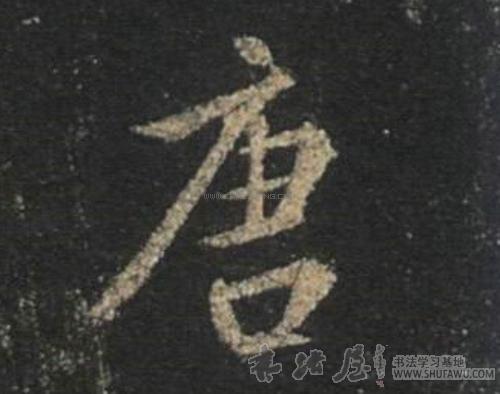 唐
书法屋
书法学习基地
WWW.SHUFAWU.COM